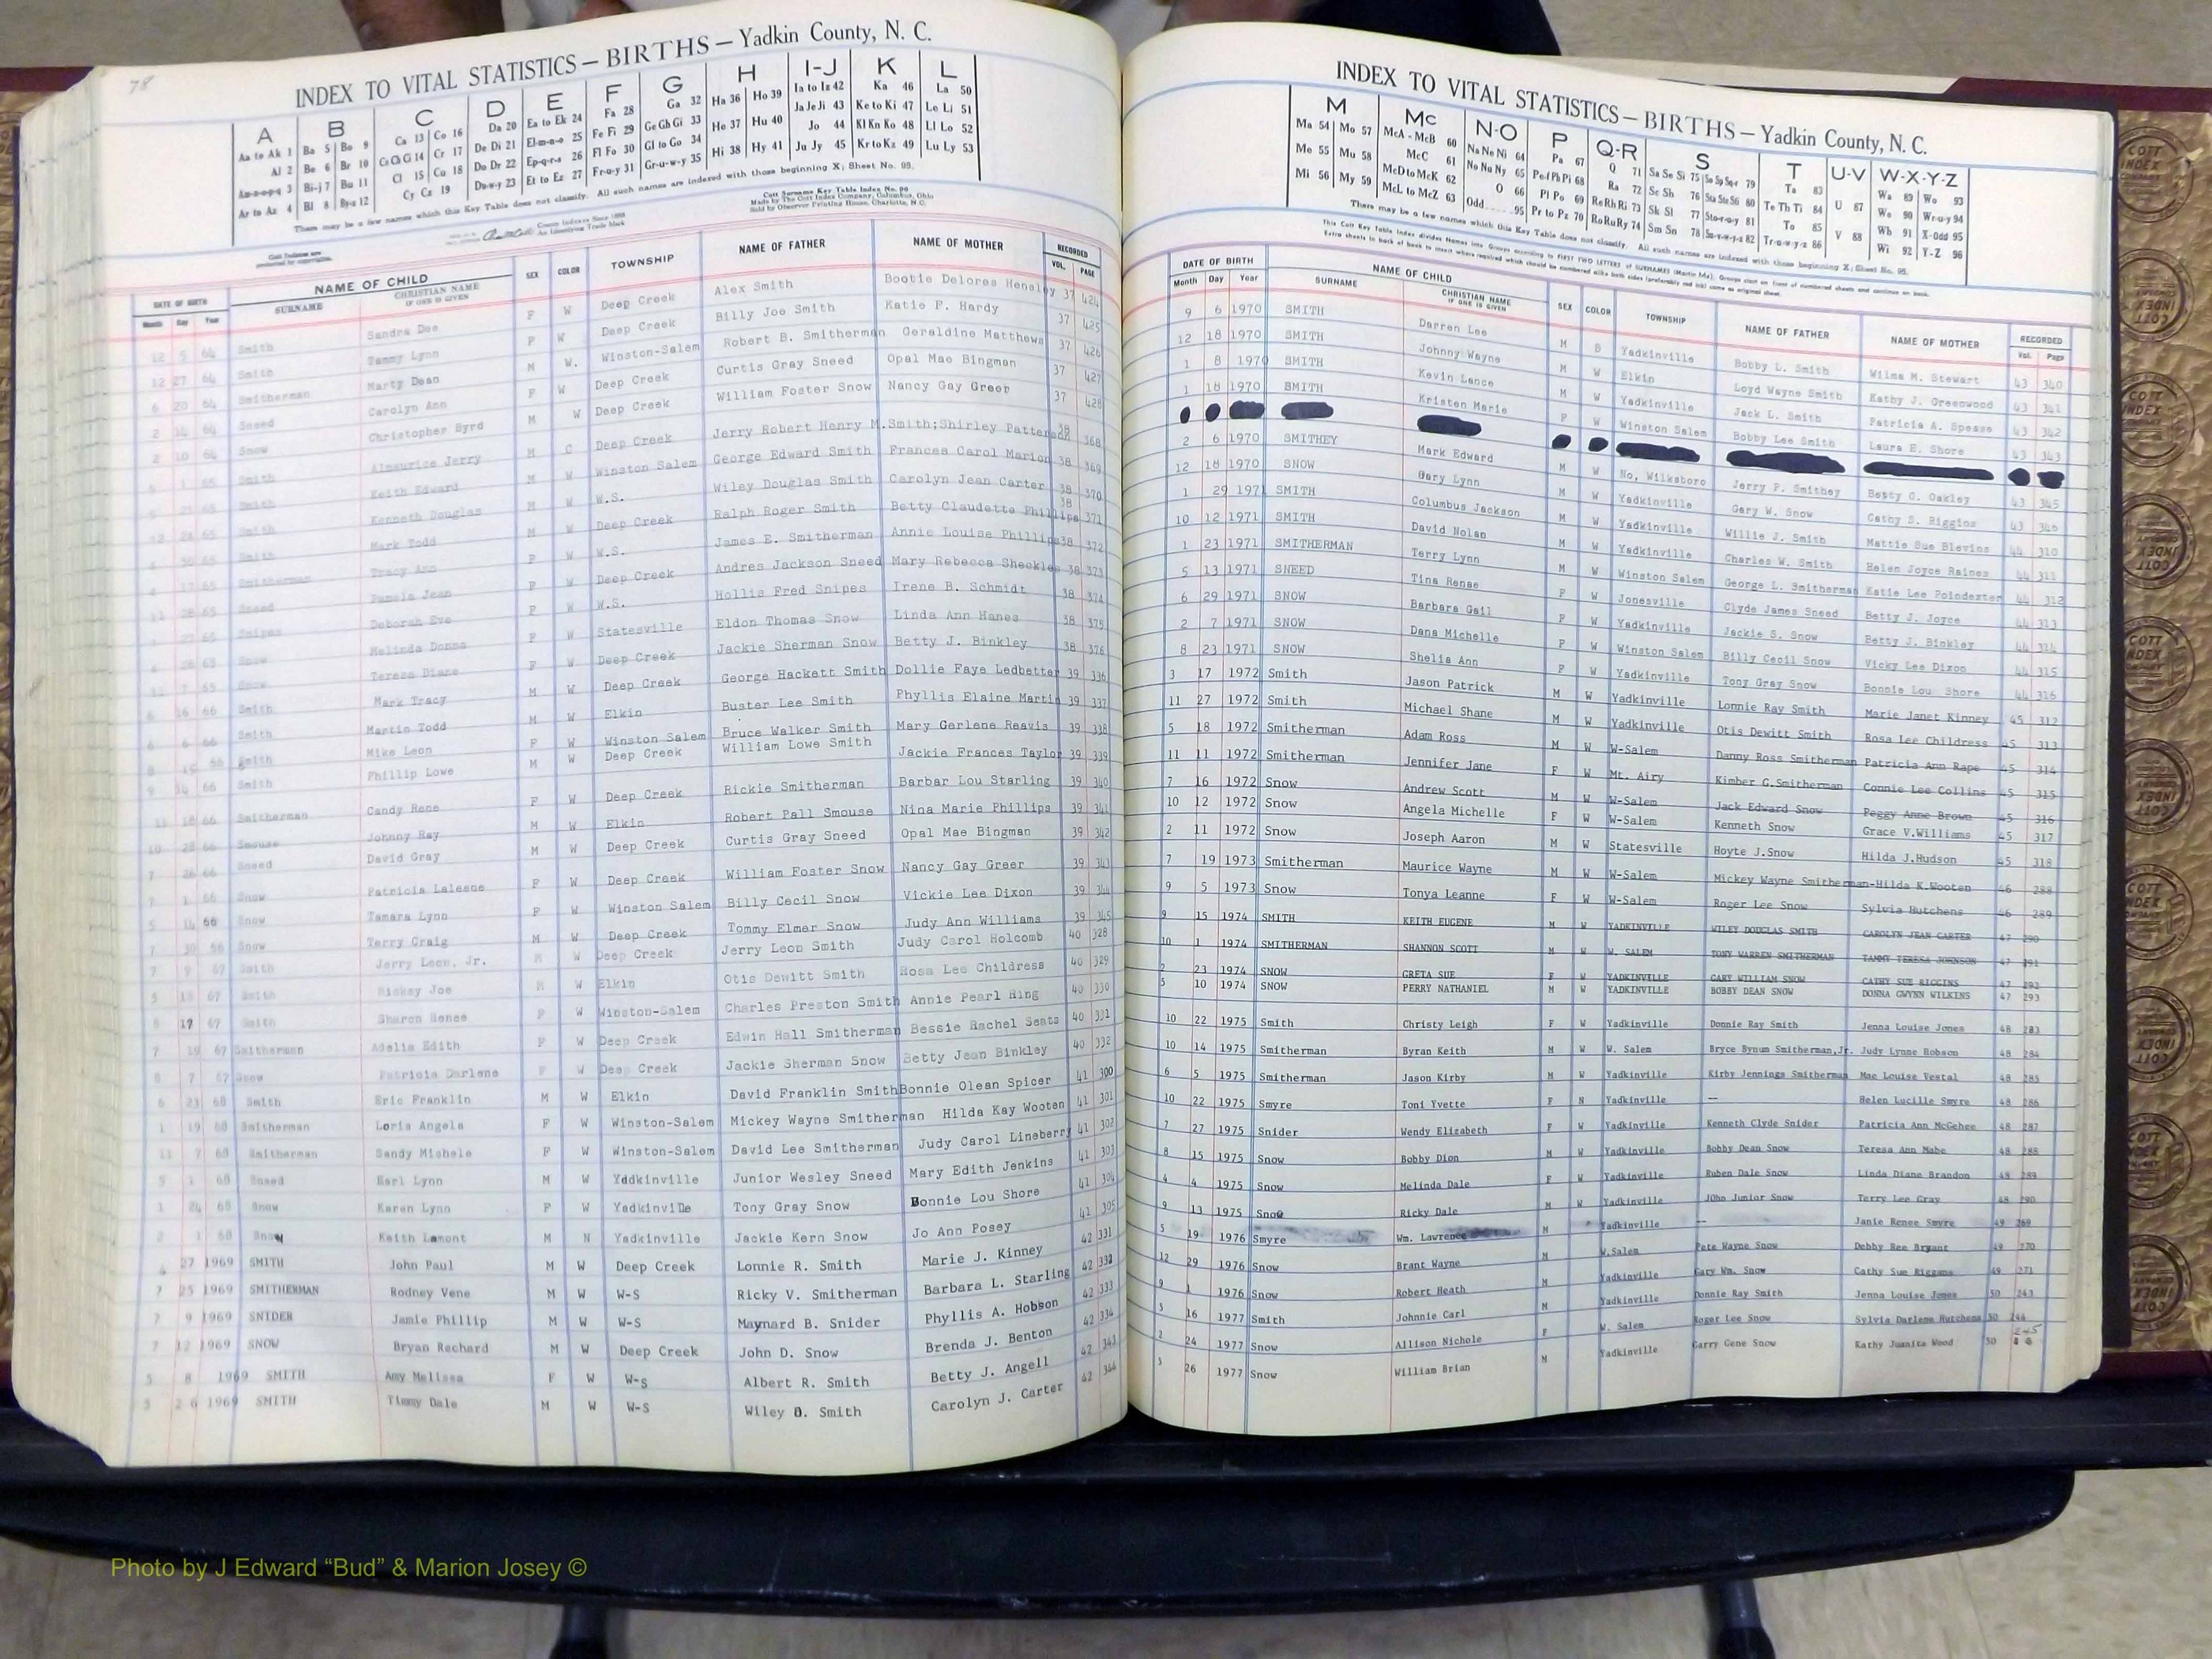 78
INDEX TO VITAL STATISTICS — BIRTHS — Yadkin County, N. C.
A B C D E F G H I-J K L
Aa to Ak 1 Ba 5 Bo 9 Ca 13 Co 16 Da 20 Ea to Ek 24 Fa 28 Ga 32 Ha 36 Ho 39 Ia to Iz 42 Ka 46 La 50
Al 2 Be 6 Br 10 Ce Ch Ci 14 Cr 17 De Di 21 El-m-n-o 25 Fe Fi 29 Ge Gh Gi 33 He 37 Hu 40 Ja Je Ji 43 Ke to Ki 47 Le Li 51
Am-n-o-p-q 3 Bi-j 7 Bu 11 Cl 15 Cu 18 Do Dr 22 Ep-q-r-s 26 Fl Fo 30 Gl to Go 34 Hi 38 Hy 41 Jo 44 Kl Kn Ko 48 Ll Lo 52
Ar to Az 4 Bl 8 By-z 12 Cy Cz 19 Du-w-y 23 Et to Ez 27 Fr-u-y 31 Gr-u-w-y 35 Ju Jy 45 Kr to Kz 49 Lu Ly 53
There may be a few names which this Key Table does not classify. All such names are indexed with those beginning X; Sheet No. 95.
DATE OF BIRTH NAME OF CHILD SEX COLOR TOWNSHIP NAME OF FATHER NAME OF MOTHER RECORDED
Month Day Year SURNAME CHRISTIAN NAME IF ONE IS GIVEN VOL. PAGE
12 5 64 Smith Sandra Dee F W Deep Creek Alex Smith Bootie Delores Hensley 37 424
12 27 64 Smith Tammy Lynn F W Deep Creek Billy Joe Smith Katie F. Hardy 37 425
6 20 64 Smitherman Marty Dean M W. Winston-Salem Robert B. Smitherman Geraldine Matthews 37 426
2 14 64 Sneed Carolyn Ann F W Deep Creek Curtis Gray Sneed Opal Mae Bingman 37 427
2 10 64 Snow Christopher Byrd M W Deep Creek William Foster Snow Nancy Gay Greer 37 428
1 65 Smith Almaurice Jerry M C Deep Creek Jerry Robert Henry M.Smith;Shirley Patterson 38 368
21 65 Smith Keith Edward M W Winston Salem George Edward Smith Frances Carol Marion 38 369
12 24 65 Smith Kenneth Douglas M W W.S. Wiley Douglas Smith Carolyn Jean Carter 38 370
30 65 Smith Mark Todd M W Deep Creek Ralph Roger Smith Betty Claudette Phillips 38 371
17 65 Smitherman Tracy Ann F W W.S. James E. Smitherman Annie Louise Phillips 38 372
11 28 65 Sneed Pamela Jean F W Deep Creek Andres Jackson Sneed Mary Rebecca Sheckles 38 373
27 65 Snipes Deborah Eve F W W.S. Hollis Fred Snipes Irene B. Schmidt 38 374
26 65 Snow Melinda Donna F W Statesville Eldon Thomas Snow Linda Ann Hanes 38 375
7 65 Snow Teresa Diane F W Deep Creek Jackie Sherman Snow Betty J. Binkley 38 376
6 16 66 Smith Mark Tracy M W Deep Creek George Hackett Smith Dollie Faye Ledbetter 39 336
6 6 66 Smith Martin Todd M W Elkin Buster Lee Smith Phyllis Elaine Martin 39 337
8 15 66 Smith Mike Leon F W Winston Salem Bruce Walker Smith Mary Gerlene Reavis 39 338
9 14 66 Smith Phillip Lowe M W Deep Creek William Lowe Smith Jackie Frances Taylor 39 339
11 18 66 Smitherman Candy Rene F W Deep Creek Rickie Smitherman Barbar Lou Starling 39 340
10 28 66 Smouse Johnny Ray M W Elkin Robert Pall Smouse Nina Marie Phillips 39 341
7 26 66 Sneed David Gray M W Deep Creek Curtis Gray Sneed Opal Mae Bingman 39 342
7 1 66 Snow Patricia Laleene F W Deep Creek William Foster Snow Nancy Gay Greer 39 343
5 14 66 Snow Tamara Lynn F W Winston Salem Billy Cecil Snow Vickie Lee Dixon 39 344
7 30 56 Snow Terry Craig M W Deep Creek Tommy Elmer Snow Judy Ann Williams 39 345
7 9 67 Smith Jerry Leon, Jr. M W Deep Creek Jerry Leon Smith Judy Carol Holcomb 40 328
5 18 67 Smith Rickey Joe M W Elkin Otis Dewitt Smith Rosa Lee Childress 40 329
8 17 67 Smith Sharon Renee F W Winston-Salem Charles Preston Smith Annie Pearl Ring 40 330
7 19 67 Smitherman Adelia Edith F W Deep Creek Edwin Hall Smitherman Bessie Rachel Seats 40 331
8 7 67 Snow Patricia Darlene F W Deep Creek Jackie Sherman Snow Betty Jean Binkley 40 332
6 23 68 Smith Eric Franklin M W Elkin David Franklin Smith Bonnie Olean Spicer 41 300
1 19 68 Smitherman Loria Angela F W Winston-Salem Mickey Wayne Smitherman Hilda Kay Wooten 41 301
11 7 68 Smitherman Sandy Michele F W Winston-Salem David Lee Smitherman Judy Carol Lineberry 41 302
9 1 68 Sneed Earl Lynn M W Yddkinville Junior Wesley Sneed Mary Edith Jenkins 41 303
1 24 68 Snow Karen Lynn F W Yadkinville Tony Gray Snow Bonnie Lou Shore 41 304
2 1 68 Snow Keith Lamont M N Yadkinville Jackie Kern Snow Jo Ann Posey 41 305
4 27 1969 SMITH John Paul M W Deep Creek Lonnie R. Smith Marie J. Kinney 42 331
7 25 1969 SMITHERMAN Rodney Vene M W W-S Ricky V. Smitherman Barbara L. Starling 42 332
7 9 1969 SNIDER Jamie Phillip M W W-S Maynard B. Snider Phyllis A. Hobson 42 333
7 12 1969 SNOW Bryan Rechard M W Deep Creek John D. Snow Brenda J. Benton 42 334
5 8 1969 SMITH Amy Melissa F W W-S Albert R. Smith Betty J. Angell 42 343
3 26 1969 SMITH Timmy Dale M W W-S Wiley D. Smith Carolyn J. Carter 42 344
INDEX TO VITAL STATISTICS — BIRTHS — Yadkin County, N. C.
M Mc N-O P Q-R S T U-V W-X-Y-Z
Ma 54 Mo 57 McA - McB 60 Na Ne Ni 64 Pa 67 Q 71 Sa Se Si 75 So Sp Sq-r 79 Ta 83 U 87 Wa 89 Wo 93
Me 55 Mu 58 McC 61 No Nu Ny 65 Pe-f Ph Pi 68 Ra 72 Sc Sh 76 Sta Ste St6 80 Te Th Ti 84 V 88 We 90 Wr-u-y 94
Mi 56 My 59 McD to McK 62 O 66 Pl Po 69 Re Rh Ri 73 Sk Sl 77 Sto-r-u-y 81 To 85 Wh 91 X-Odd 95
McL to McZ 63 Odd 95 Pr to Pz 70 Ro Ru Ry 74 Sm Sn 78 Su-v-w-y-z 82 Tr-u-w-y-z 86 Wi 92 Y-Z 96
There may be a few names which this Key Table does not classify. All such names are indexed with those beginning X; Sheet No. 95.
DATE OF BIRTH NAME OF CHILD SEX COLOR TOWNSHIP NAME OF FATHER NAME OF MOTHER RECORDED
Month Day Year SURNAME CHRISTIAN NAME IF ONE IS GIVEN Vol. Page
9 6 1970 SMITH Darren Lee M B Yadkinville Bobby L. Smith Wilma M. Stewart 43 340
12 18 1970 SMITH Johnny Wayne M W Elkin Loyd Wayne Smith Kathy J. Greenwood 43 341
1 8 1970 SMITH Kevin Lance M W Yadkinville Jack L. Smith Patricia A. Spease 43 342
1 18 1970 SMITH Kristen Marie F W Winston Salem Bobby Lee Smith Laura E. Shore 43 343
2 6 1970 SMITHEY Mark Edward M W No, Wilksboro Jerry P. Smithey Betty C. Oakley 43 345
12 18 1970 SNOW Gary Lynn M W Yadkinville Gary W. Snow Cathy S. Riggins 43 346
1 29 1971 SMITH Columbus Jackson M W Yadkinville Willie J. Smith Mattie Sue Blevins 44 310
10 12 1971 SMITH David Nolan M W Yadkinville Charles W. Smith Helen Joyce Raines 44 311
1 23 1971 SMITHERMAN Terry Lynn M W Winston Salem George L. Smitherman Katie Lee Poindexter 44 312
5 13 1971 SNEED Tina Renae F W Jonesville Clyde James Sneed Betty J. Joyce 44 313
6 29 1971 SNOW Barbara Gail F W Yadkinville Jackie S. Snow Betty J. Binkley 44 314
2 7 1971 SNOW Dana Michelle F W Winston Salem Billy Cecil Snow Vicky Lee Dixon 44 315
8 23 1971 SNOW Shelia Ann F W Yadkinville Tony Gray Snow Bonnie Lou Shore 44 316
3 17 1972 Smith Jason Patrick M W Yadkinville Lonnie Ray Smith Marie Janet Kinney 45 312
11 27 1972 Smith Michael Shane M W Yadkinville Otis Dewitt Smith Rosa Lee Childress 45 313
5 18 1972 Smitherman Adam Ross M W W-Salem Danny Ross Smitherman Patricia Ann Rape 45 314
11 11 1972 Smitherman Jennifer Jane F W Mt. Airy Kimber G.Smitherman Connie Lee Collins 45 315
7 16 1972 Snow Andrew Scott M W W-Salem Jack Edward Snow Peggy Anne Brown 45 316
10 12 1972 Snow Angela Michelle F W W-Salem Kenneth Snow Grace V.Williams 45 317
2 11 1972 Snow Joseph Aaron M W Statesville Hoyte J.Snow Hilda J.Hudson 45 318
7 19 1973 Smitherman Maurice Wayne M W W-Salem Mickey Wayne Smitherman-Hilda K.Wooten 46 288
9 5 1973 Snow Tonya Leanne F W W-Salem Roger Lee Snow Sylvia Hutchens 46 289
9 15 1974 SMITH KEITH EUGENE M W YADKINVILLE WILEY DOUGLAS SMITH CAROLYN JEAN CARTER 47 290
10 1 1974 SMITHERMAN SHANNON SCOTT M W W. SALEM TONY WARREN SMITHERMAN TAMMY TERESA JOHNSON 47 291
2 23 1974 SNOW GRETA SUE F W YADKINVILLE GARY WILLIAM SNOW CATHY SUE RIGGINS 47 292
5 10 1974 SNOW PERRY NATHANIEL M W YADKINVILLE BOBBY DEAN SNOW DONNA GWYNN WILKINS 47 293
10 22 1975 Smith Christy Leigh F W Yadkinville Donnie Ray Smith Jenna Louise Jones 48 283
10 14 1975 Smitherman Byran Keith M W W. Salem Bryce Bynum Smitherman,Jr. Judy Lynne Hobson 48 284
6 5 1975 Smitherman Jason Kirby M W Yadkinville Kirby Jennings Smitherman Mae Louise Vestal 48 285
10 22 1975 Smyre Toni Yvette F N Yadkinville — Helen Lucille Smyre 48 286
7 27 1975 Snider Wendy Elizabeth F W Yadkinville Kenneth Clyde Snider Patricia Ann McGehee 48 287
8 15 1975 Snow Bobby Dion M W Yadkinville Bobby Dean Snow Teresa Ann Mabe 48 288
4 4 1975 Snow Melinda Dale F W Yadkinville Ruben Dale Snow Linda Diane Brandon 48 289
9 13 1975 Snow Ricky Dale M W Yadkinville John Junior Snow Terry Lee Gray 48 290
5 19 1976 Smyre Wm. Lawrence M Yadkinville -- Janie Renee Smyre 49 269
12 29 1976 Snow Brant Wayne M W.Salem Pete Wayne Snow Debby Ree Bryant 49 270
9 1 1976 Snow Robert Heath M Yadkinville Gary Wm. Snow Cathy Sue Riggans 49 271
3 16 1977 Smith Johnnie Carl M Yadkinville Donnie Ray Smith Jenna Louise Jones 50 243
2 24 1977 Snow Allison Nichole F W. Salem Roger Lee Snow Sylvia Darlene Hutchens 50 244
3 26 1977 Snow William Brian M Yadkinville Garry Gene Snow Kathy Juanita Wood 50 245
Photo by J Edward “Bud” & Marion Josey ©